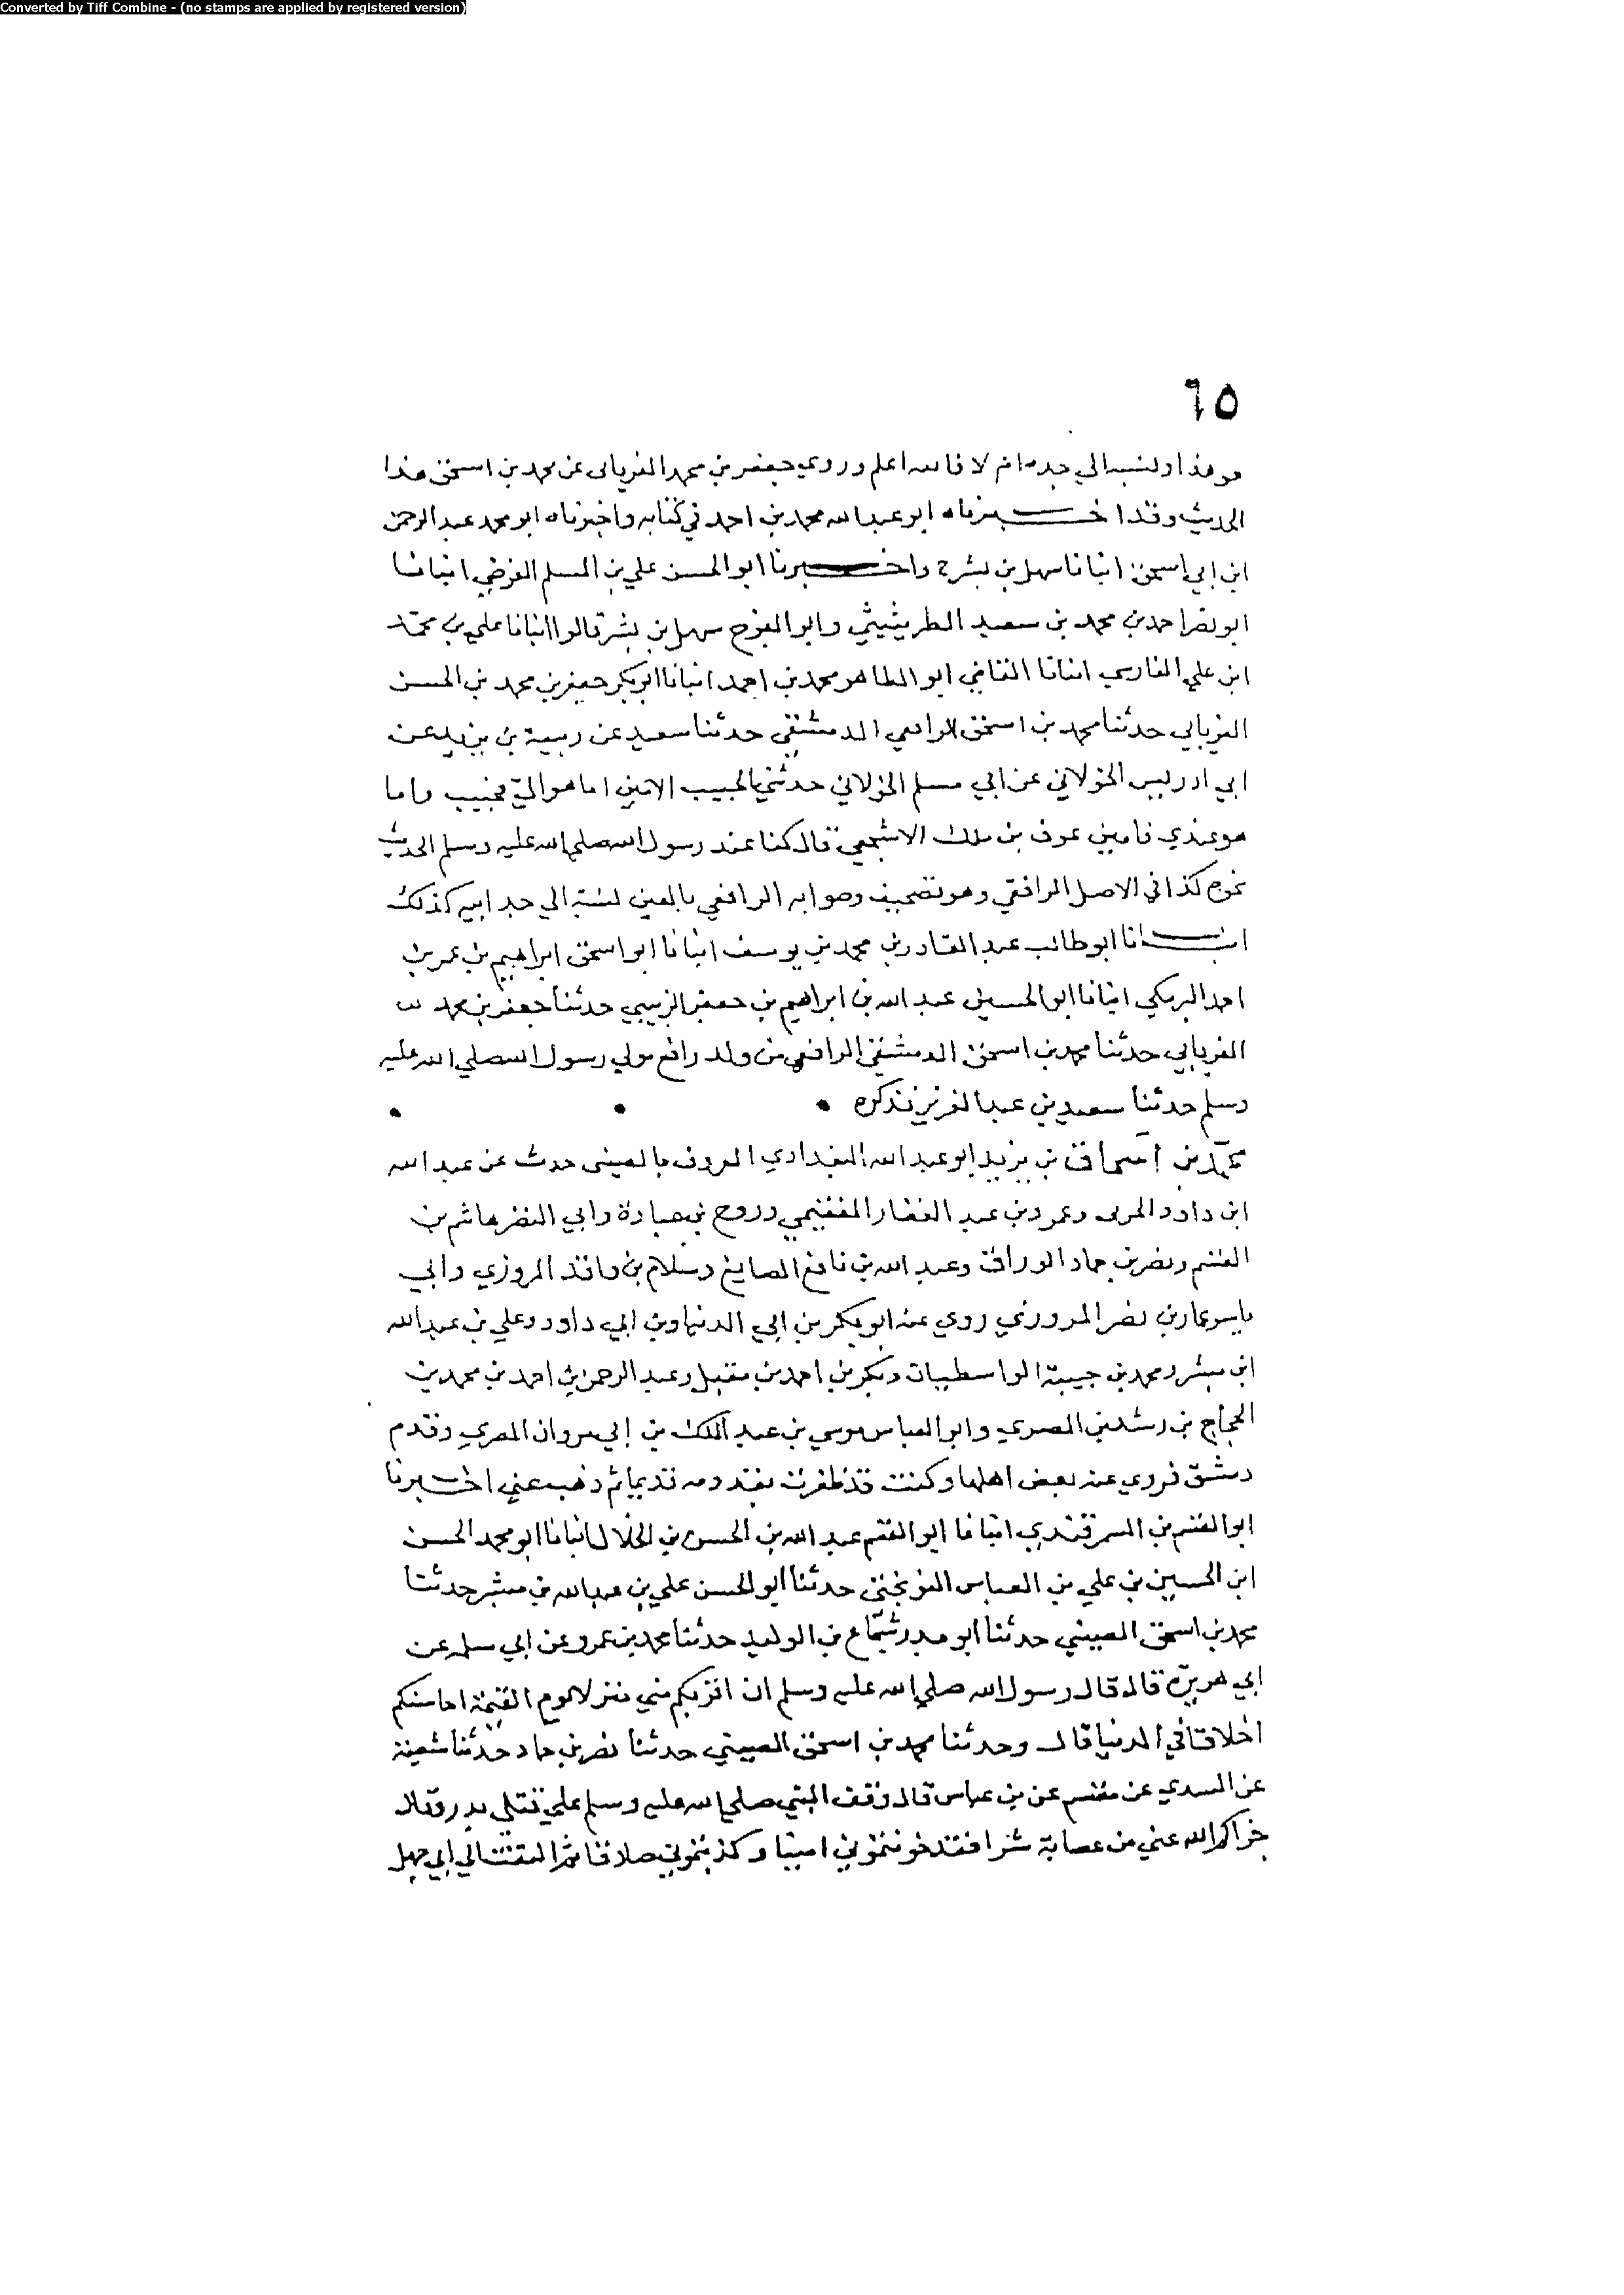 Converted by Tiff Combine - (no stamps are applied by registered version)
٦٥
هو هذا ولنسبه الي جده ام لا فالله اعلم وروي جعفر بن محمد الفريابى عن محمد بن اسحق هذا
الحديث وقد اخبرناه ابو عبدالله محمد بن احمد في كتابه واخبرناه ابو محمد عبد الرحمن
ابن ابي اسحق انبانا سهل بن بشر ح واخبرنا ابو الحسن علي بن المسلم الفرضي انبانا
ابو نصر احمد بن محمد بن سعيد الطريثيثي وابو الفرج سهل بن بشر قالوا انبانا علي بن محمد
ابن علي الفارسي انبانا القاضي ابو الطاهر محمد بن احمد انبانا ابو بكر جعفر بن محمد بن الحسن
الفريابي حدثنا محمد بن اسحق الرافعي الدمشقي حدثنا سعيد عن ربيعة بن يزيد عن
ابي ادريس الخولاني عن ابي مسلم الخولاني حدثني الحبيب الامين اما هو اليّ فحبيب واما
هو عندي فامين عوف بن ملك الاشجعي قال كنا عند رسول الله صلي الله عليه وسلم الحديث
نحوه كذا في الاصل الرافقي وهو تصحيف وصوابه الرافعي بالعين نسبة الي جد ابيه كذلك
انبانا ابو طالب عبد القادر بن محمد بن يوسف انبانا ابو اسحق ابراهيم بن عمر بن
احمد البرمكي انبانا ابو الحسين عبد الله بن ابراهيم بن جعفر الزبيبي حدثنا جعفر بن محمد
الفريابي حدثنا محمد بن اسحق الدمشقي الرافعي من ولد رافع مولي رسول الله صلي الله عليه
وسلم حدثنا سعيد بن عبد العزيز فذكره
محمد بن اسحاق بن يزيد ابو عبد الله البغدادي المعروف بالصينى حدث عن عبد الله
ابن داود الخربى وعمرو بن عبد الغفار الفقيمي وروح بن عبادة وابي النضر هاشم بن
القسم ونصر بن حماد الوراق وعبد الله بن نافع الصايغ وسلام بن واقد المروزي وابي
ياسر عمار بن نصر المروزي روي عنه ابو بكر بن ابي الدنيا وبن ابي داود وعلي بن عبد الله
ابن مبشر ومحمد بن حبيبة الواسطيان وبكر بن احمد بن مقبل وعبد الرحمن بن احمد بن محمد بن
الحجاج بن رشدين المصري وابو العباس موسي بن عبد الملك بن ابي مروان المصري وقدم
دمشق فروي عنه بعض اهلها وكنت قد ظفرت بقدومه قديما ثم ذهب عني اخبرنا
ابو القسم بن السمرقندي انبانا ابو القسم عبد الله بن الحسن بن الخلال انبانا ابو محمد الحسن
ابن الحسين بن علي بن العباس النوبختى حدثنا ابو الحسن علي بن عبد الله بن مبشر حدثنا
محمد بن اسحق الصيني حدثنا ابو بدر شجاع بن الوليد حدثنا محمد بن عمرو عن ابي سلمه عن
ابي هريرة قال قال رسول الله صلي الله عليه وسلم ان اقربكم مني منزلا يوم القيمة احاسنكم
اخلاقا في الدنيا قال وحدثنا محمد بن اسحق الصيني حدثنا نصر بن حماد حدثنا شعبة
عن السدي عن مقسم عن بن عباس قال وقف النبي صلي الله عليه وسلم علي قتلى بدر وقال
جزاكم الله عني من عصابة شرا فقد خونتموني امينا وكذبتموني صادقا ثم التفت الي ابي جهل